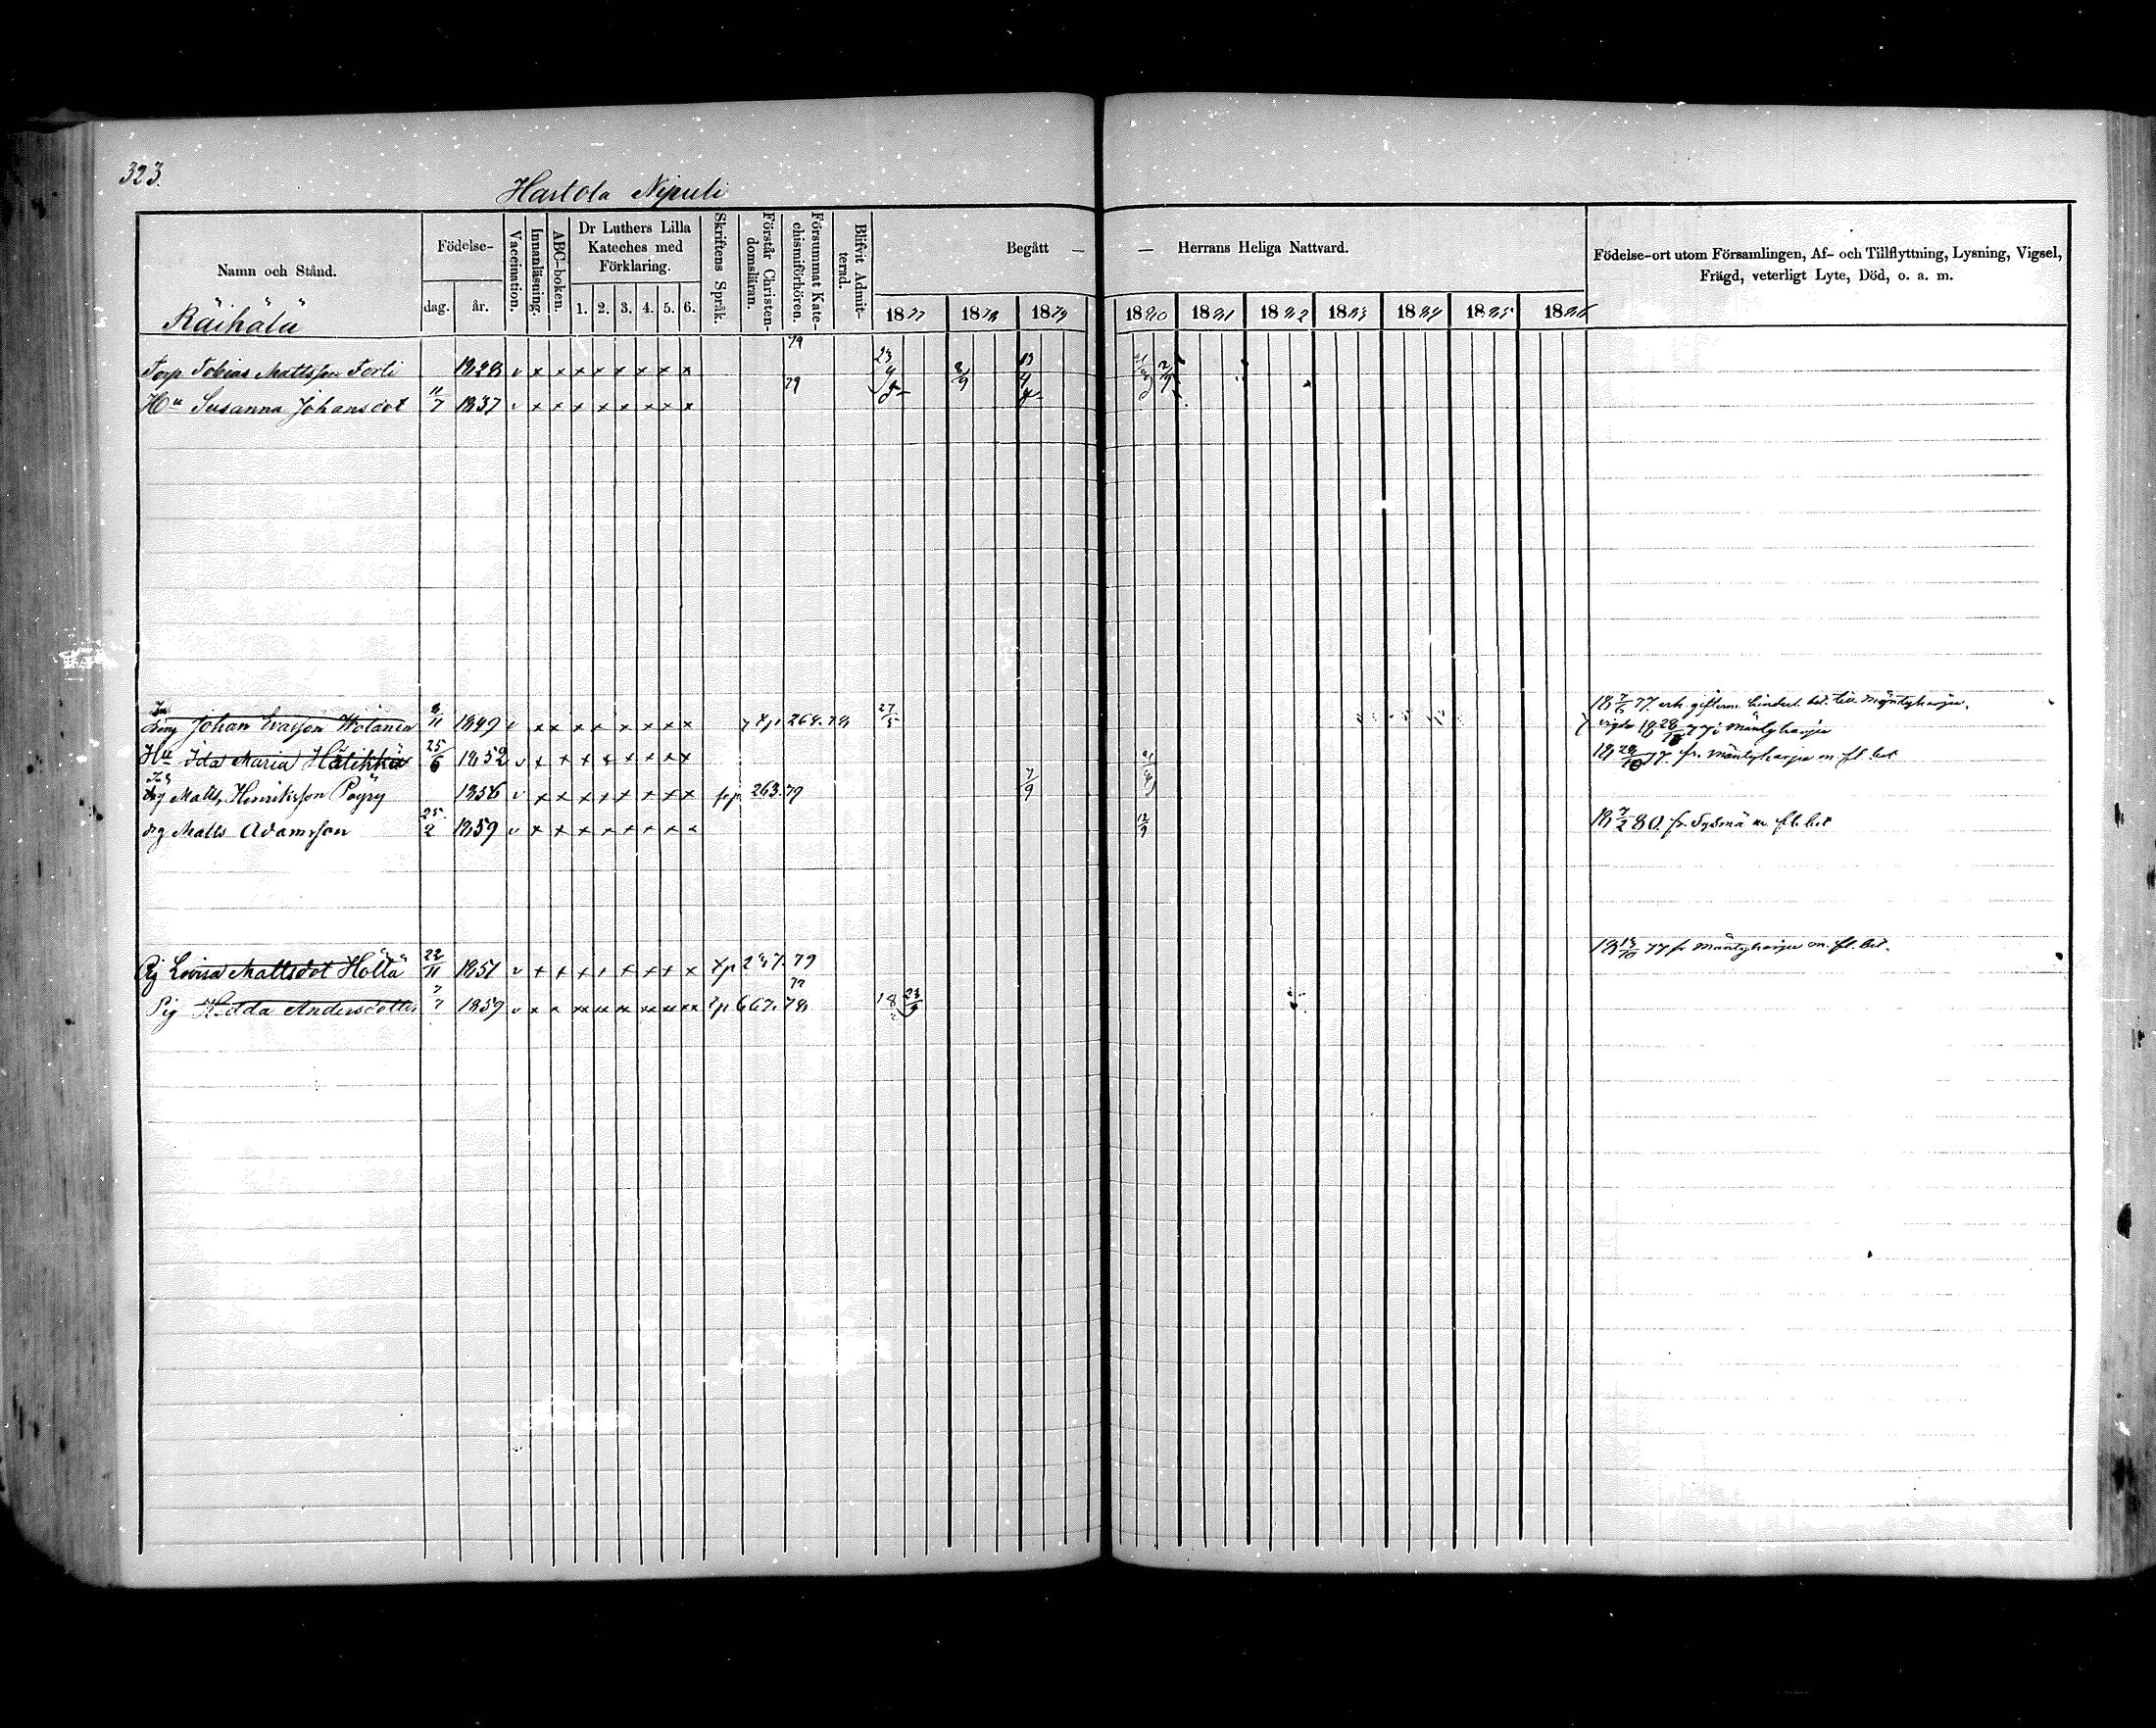 323.
Hartola Nipuli
Namn och Stånd.
Födelse-
dag.
år.
Vaccination.
Innanläsning.
ABC-boken.
Dr Luthers Lilla
Kateches med
Förklaring.
1. 2. 3. 4. 5. 6.
Skriftens Språk.
Förstår Christen-
domsläran.
Försummat Kate-
chismiförhören.
Blifvit Admit-
terad.
Begått — — Herrans Heliga Nattvard.
1877 1878 1879 1880 1881 1882 1883 1884 1885 1886
Födelse-ort utom Församlingen, Af- och Tillflyttning, Lysning, Vigsel,
Frägd, veterligt Lyte, Död, o. a. m.
Räihälä
Torp Tobias Mattsson Torli 1828 v x x x x x x x x 79 23/4 2/9 13/4
Hu Susanna Johansdot 11/7 1837 v x x x x x x x x 79
Johan Evasson 8/11 1849 v x x x x x x x x 268. 78 27/5 18 7/6 77. erh. gifterm. hindersl. bet. till Mäntyharju.
vigda 18 28/10 77 i Mäntyharju
Hu Ida Maria 25/6 1852 v x x x x x x x x 18 28/10 77. fr. Mäntyharju m fl. bet
drg Matts Henriksson Pöyry 1856 v x x x x x x x x 263. 79 7/9
drg Matts Adamsson 25/2 1859 v x x x x x x x x 12/9 18 7/2 80. fr. Sysmä m. fl. bet
Pig Lovisa Mattsdot Hölttä 22/11 1851 v x x x x x x x x 79 18 13/10 77 fr Mäntyharju m. fl. bet.
77
Pig Hedda Andersdotter 7/7 1859 v x x xx xx xx xx xx xx 667. 78 23/9